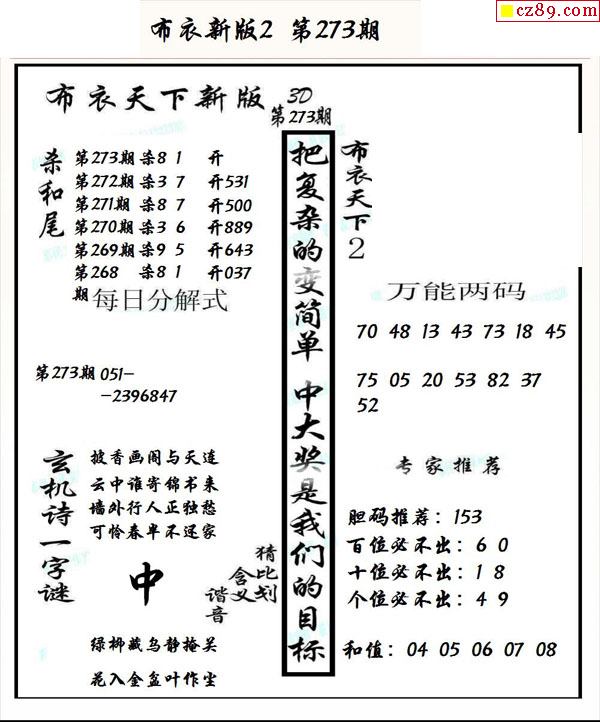 cz89.com
布衣新版2 第273期
布衣天下新版 3D
第273期
杀和尾
第273期 杀8 1 开
第272期 杀3 7 开531
第271期 杀8 7 开500
第270期 杀3 6 开889
第269期 杀9 5 开643
第268期 杀8 1 开037
每日分解式
第273期 051-
-2396847
玄机诗一字谜
披香画阁与天连
云中谁寄锦书来
墙外行人正独愁
可怜春半不还家
中
猜比划
含义
谐音
绿柳藏乌静掩关
花入金盆叶作尘
把复杂的变简单 中大奖是我们的目标
布衣天下2
万能两码
70 48 13 43 73 18 45
75 05 20 53 82 37
52
专家推荐
胆码推荐：153
百位必不出：6 0
十位必不出：1 8
个位必不出：4 9
和值：04 05 06 07 08